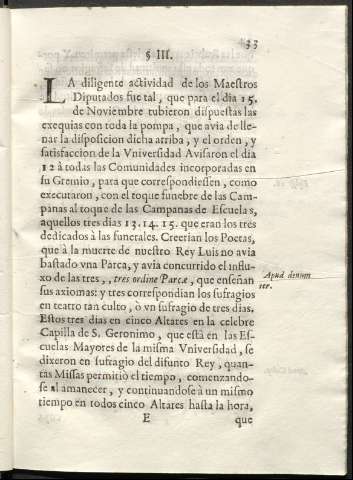 33
§ III.
LA diligente actividad de los Maestros
Diputados fue tal, que para el dia 15.
de Noviembre tubieron dispuestas las
exequias con toda la pompa, que avia de lle-
nar la disposicion dicha arriba, y el orden, y
satisfaccion de la Vniversidad Avisaron el dia
12 à todas las Comunidades incorporadas en
su Gremio, para que correspondiessen, como
executaron, con el toque funebre de las Cam-
panas al toque de las Campanas de Escuelas,
aquellos tres dias 13. 14. 15. que eran los tres
dedicados à las funerales. Creerian los Poetas,
que à la muerte de nuestro Rey Luis no avia
bastado vna Parca, y avia concurrido el influ-
xo de las tres, , tres ordine Parcæ, que enseñan
Apud
ter.
sus axiomas: y tres correspondian los sufragios
en teatro tan culto, ò vn sufragio de tres dias.
Estos tres dias en cinco Altares en la celebre
Capilla de S. Geronimo, que està en las Es-
cuelas Mayores de la misma Vniversidad, se
dixeron en sufragio del difunto Rey, quan-
tas Missas permitiò el tiempo, comenzando-
se al amanecer, y continuandose à un mismo
tiempo en todos cinco Altares hasta la hora,
E que